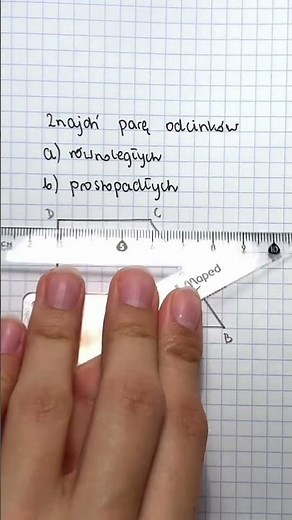 Znajdń parę odcinków
a) równoległych
b) prostopadłych
D C
CM 2 5 8 9 10
Maped
B